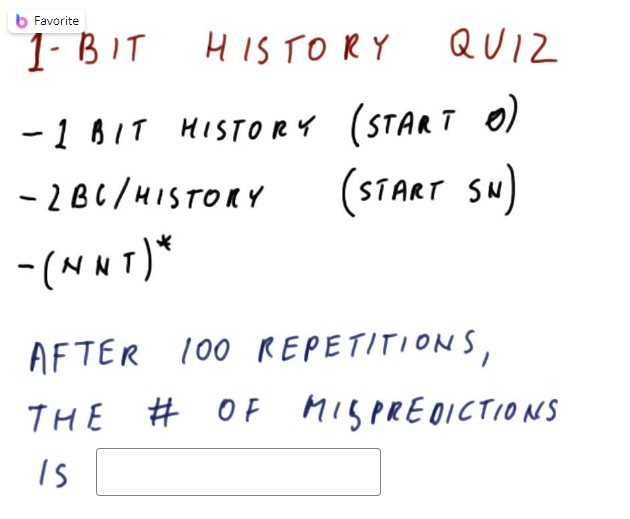 Favorite
1-BIT HISTORY QUIZ
- 1 BIT HISTORY (START 0)
- 2BC/HISTORY (START SN)
- (NNT)*
AFTER 100 REPETITIONS,
THE # OF MISPREDICTIONS
IS